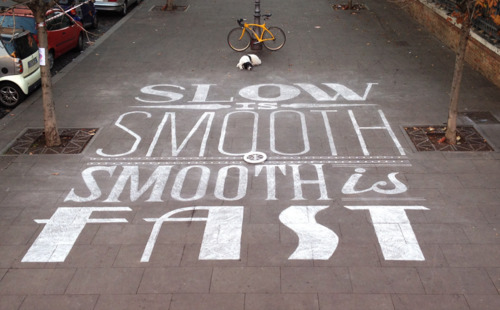 SLOW
IS
SMOOTH
SMOOTH is
FAST